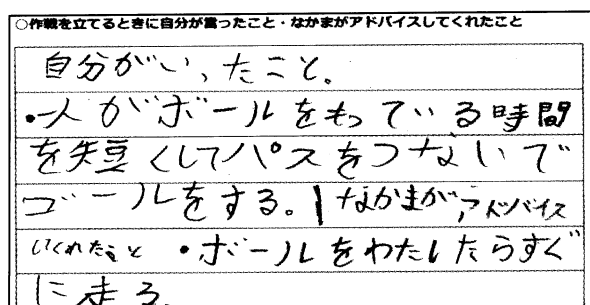 ○作戦を立てるときに自分が言ったこと・なかまがアドバイスしてくれたこと
自分がいったこと。
・一人がボールをもっている時間
を短くしてパスをつないで
ゴールをする。| なかまがアドバイス
してくれたこと ・ボールをわたしたらすぐ
に走る。